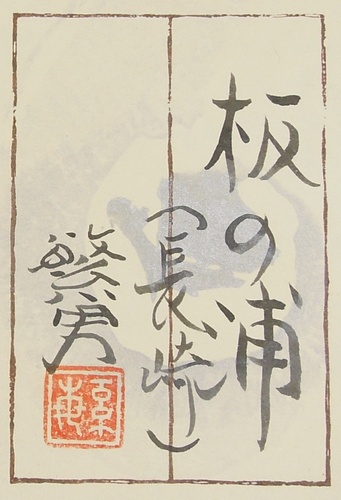 板の浦
(長崎)
繁男